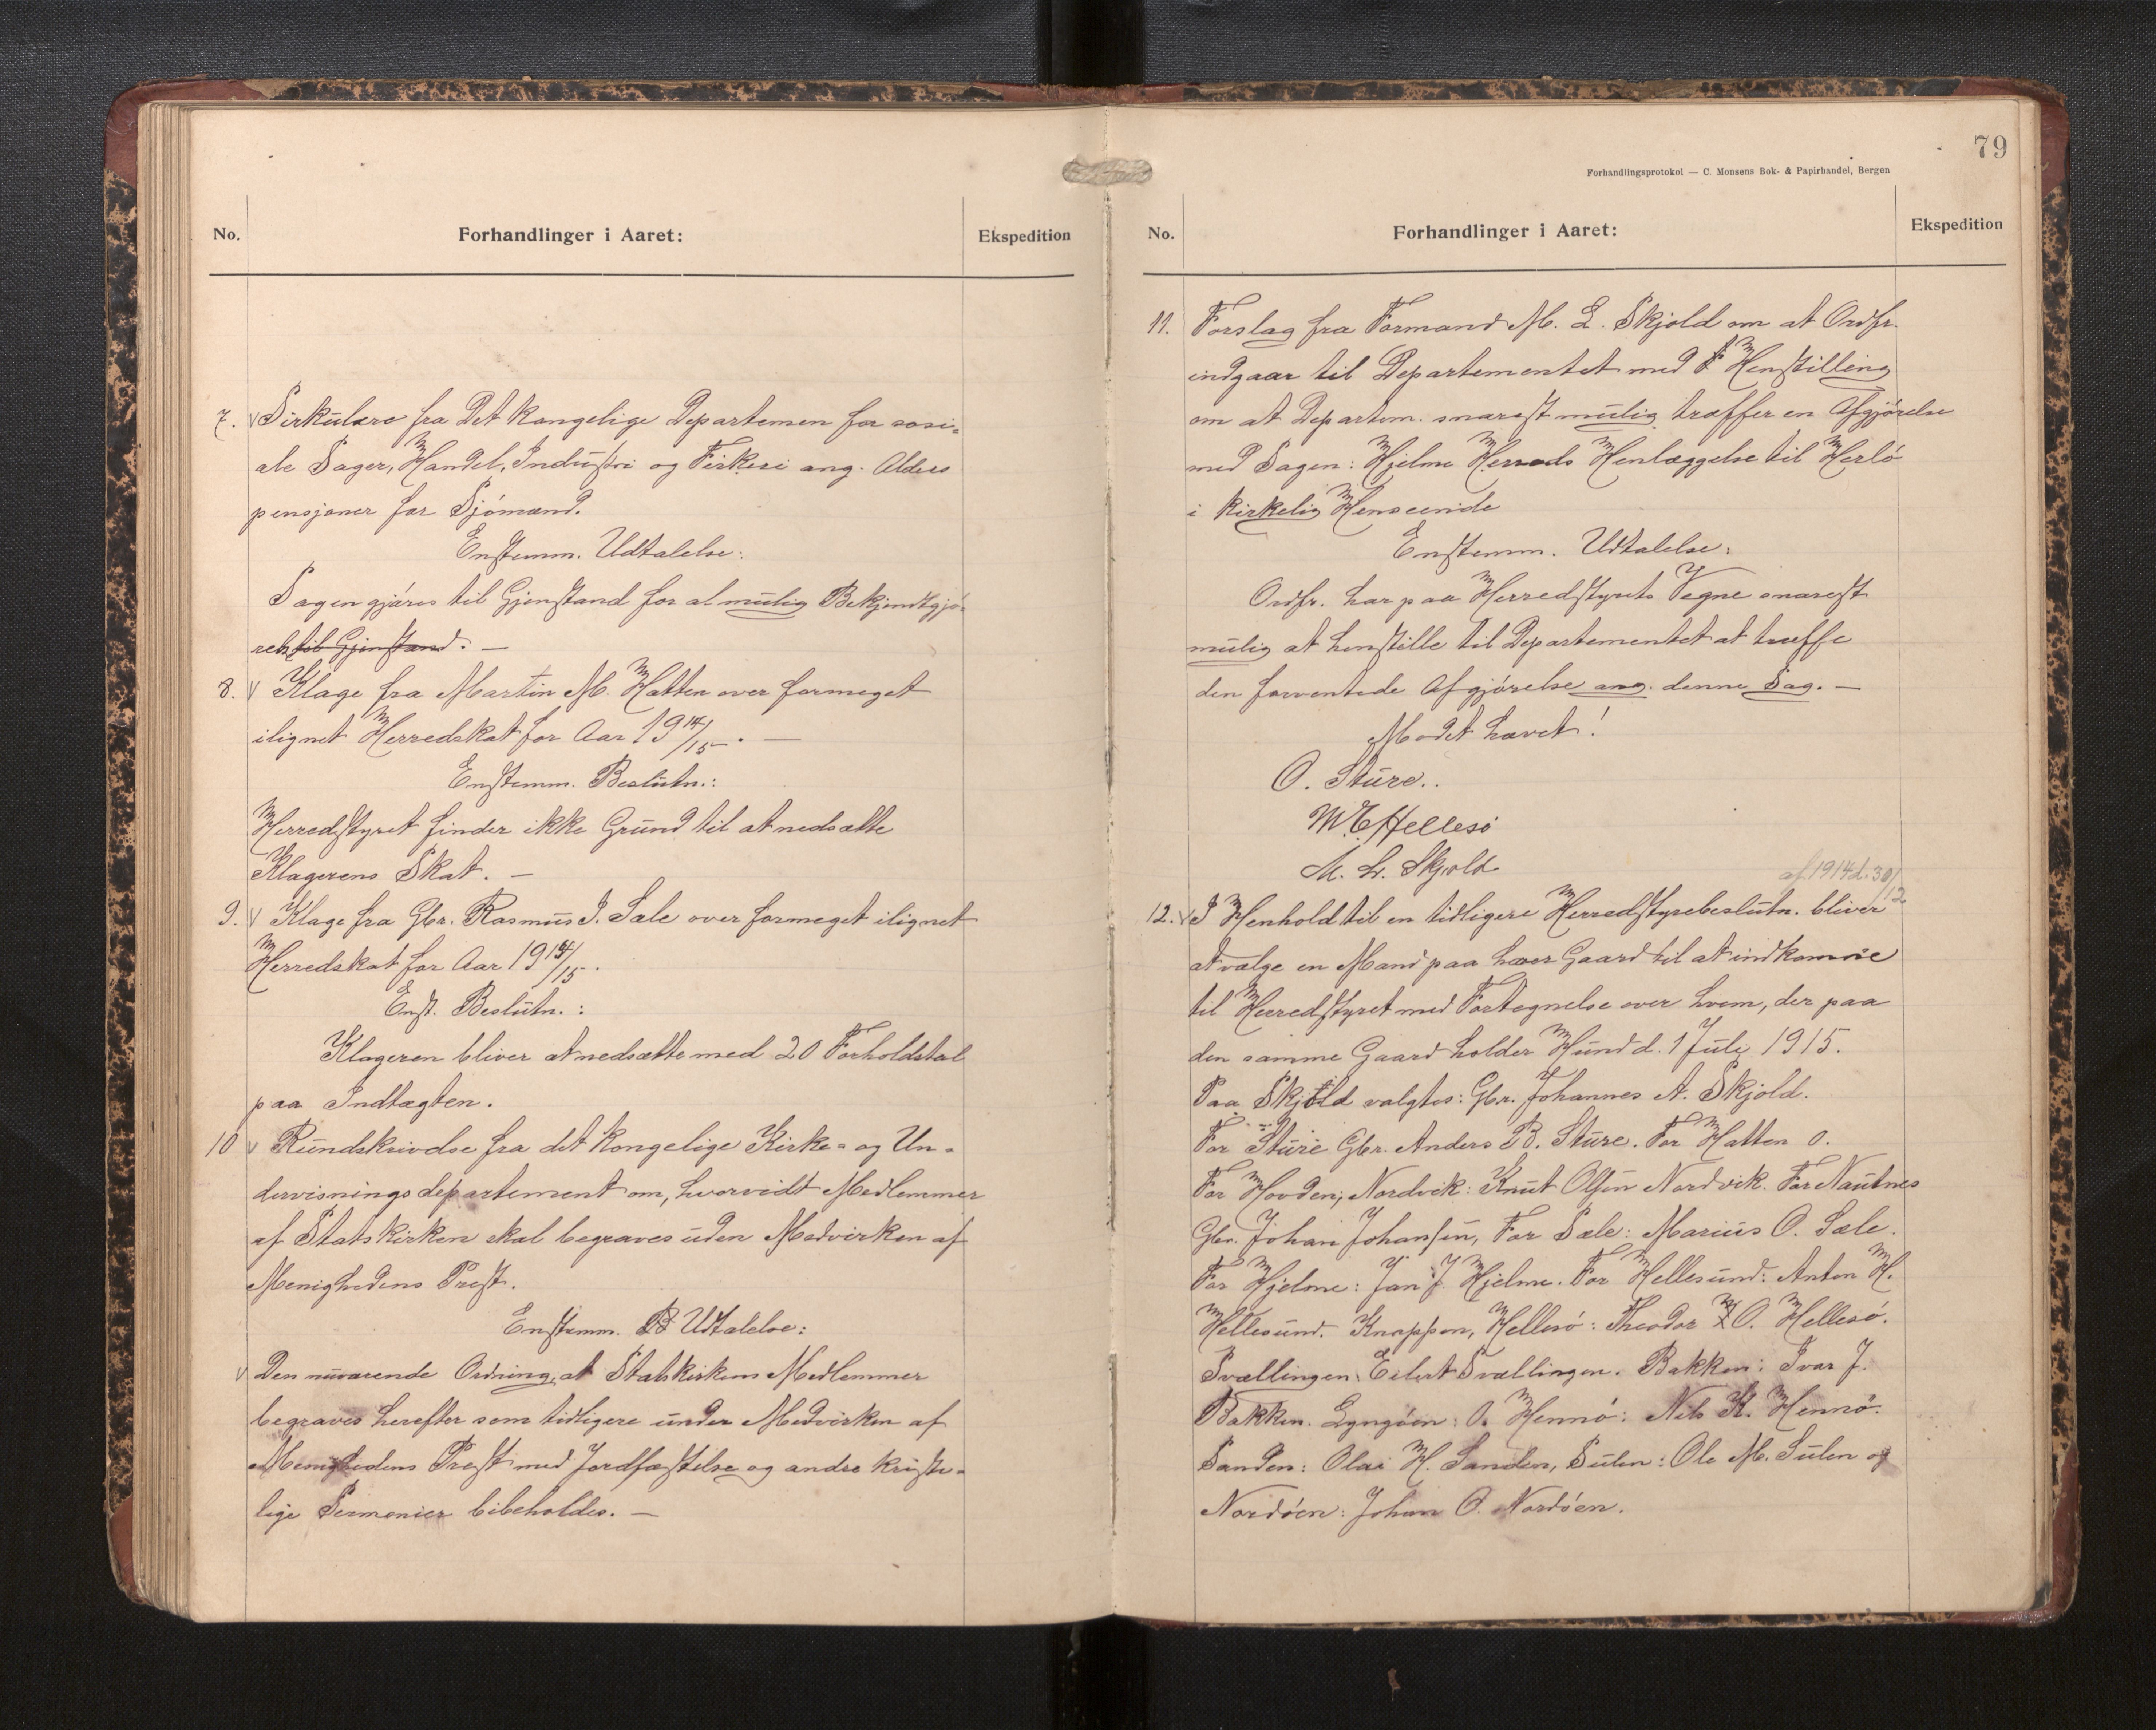 No.
Forhandlinger i Aaret:
Ekspedition
7. Sirkulære fra Det kongelige Departemen for sosi-
ale Sager, Handel, Industri og Fiskeri ang. Alders
pensjoner for Sjómænd.
Enstemm. Udtalelse:
Sagen gjöres til Gjenstand for al mulig Bekjendtgjö-
relse til Gjenstand. —
8. Klage fra Martin M. Hatten over formeget
ilignet Herredskat for Aar 1914/15. —
Enstemm. Beslutn.:
Herredstyret finder ikke Grund til at nedsætte
Klagerens Skat. —
9. Klage fra Gbr. Rasmus J. Sæle over formeget ilignet
Herredskat for Aar 1914/15.
Enst. Beslutn.:
Klageren bliver at nedsætte med 20 Forholdstal
paa Indtægten.
10 Rundskrivelse fra det kongelige Kirke- og Un-
dervisningsdepartement om, hvorvidt Medlemmer
af Statskirken skal begraves uden Medvirken af
Menighedens Prest.
Enstemm. B Udtalelse:
Den nuværende Ordning, at Statskirkens Medlemmer
begraves herefter som tidligere under Medvirken af
Menighedens Prest med Jordfæstelse og andre kriste-
lige Sermonier bibeholdes. —
79
Forhandlingsprotokol — C. Monsens Bok- & Papirhandel, Bergen
No.
Forhandlinger i Aaret:
Ekspedition
11. Forslag fra Formand M. L. Skjold om at Ordfr.
indgaar til Departementet med Henstilling
om at Departem. snarest mulig træffer en Afgjörelse
med Sagen: Hjelme Herreds Henlæggelse til Herlö
i kirkelig Henseende
Enstemm. Udtalelse:
Ordfr. har paa Herredstyrets Vegne snarest
mulig at henstille til Departementet at træffe
den forventede Afgjörelse ang. denne Sag. —
Modet hævet!
O. Sture.
M. E. Hellesö
M. L. Skjold
af 1914 d. 30/12
12. I Henhold til en tidligere Herredstyrebeslutn. bliver
at vælge en Mand paa hver Gaard til at indkomme
til Herredstyret med Fortegnelse over hvem, der paa
den samme Gaard holder Hund d. 1 Juli 1915.
Paa Skjold valgtes: Gbr. Johannes A. Skjold.
For Sture Gbr. Anders B. Sture. For Hatten O.
For Hovden, Nordvik: Knut Olsen Nordvik. For Nautnes
Gbr. Johan Johansen, For Sæle: Marius O. Sæle.
For Hjelme: Jan J. Hjelme. For Hellesund: Anton H.
Hellesund. Knappen, Hellesö: Theodor O. Hellesö.
Svællingen: Eilert Svællingen. Bakken: Ivar J.
Bakken. Lyngöen: O. Hennö: Nils K. Hennö.
Sanden: Olai H. Sanden, Sulen: Ole M. Sulen og
Nordöen: Johan O. Nordöen.